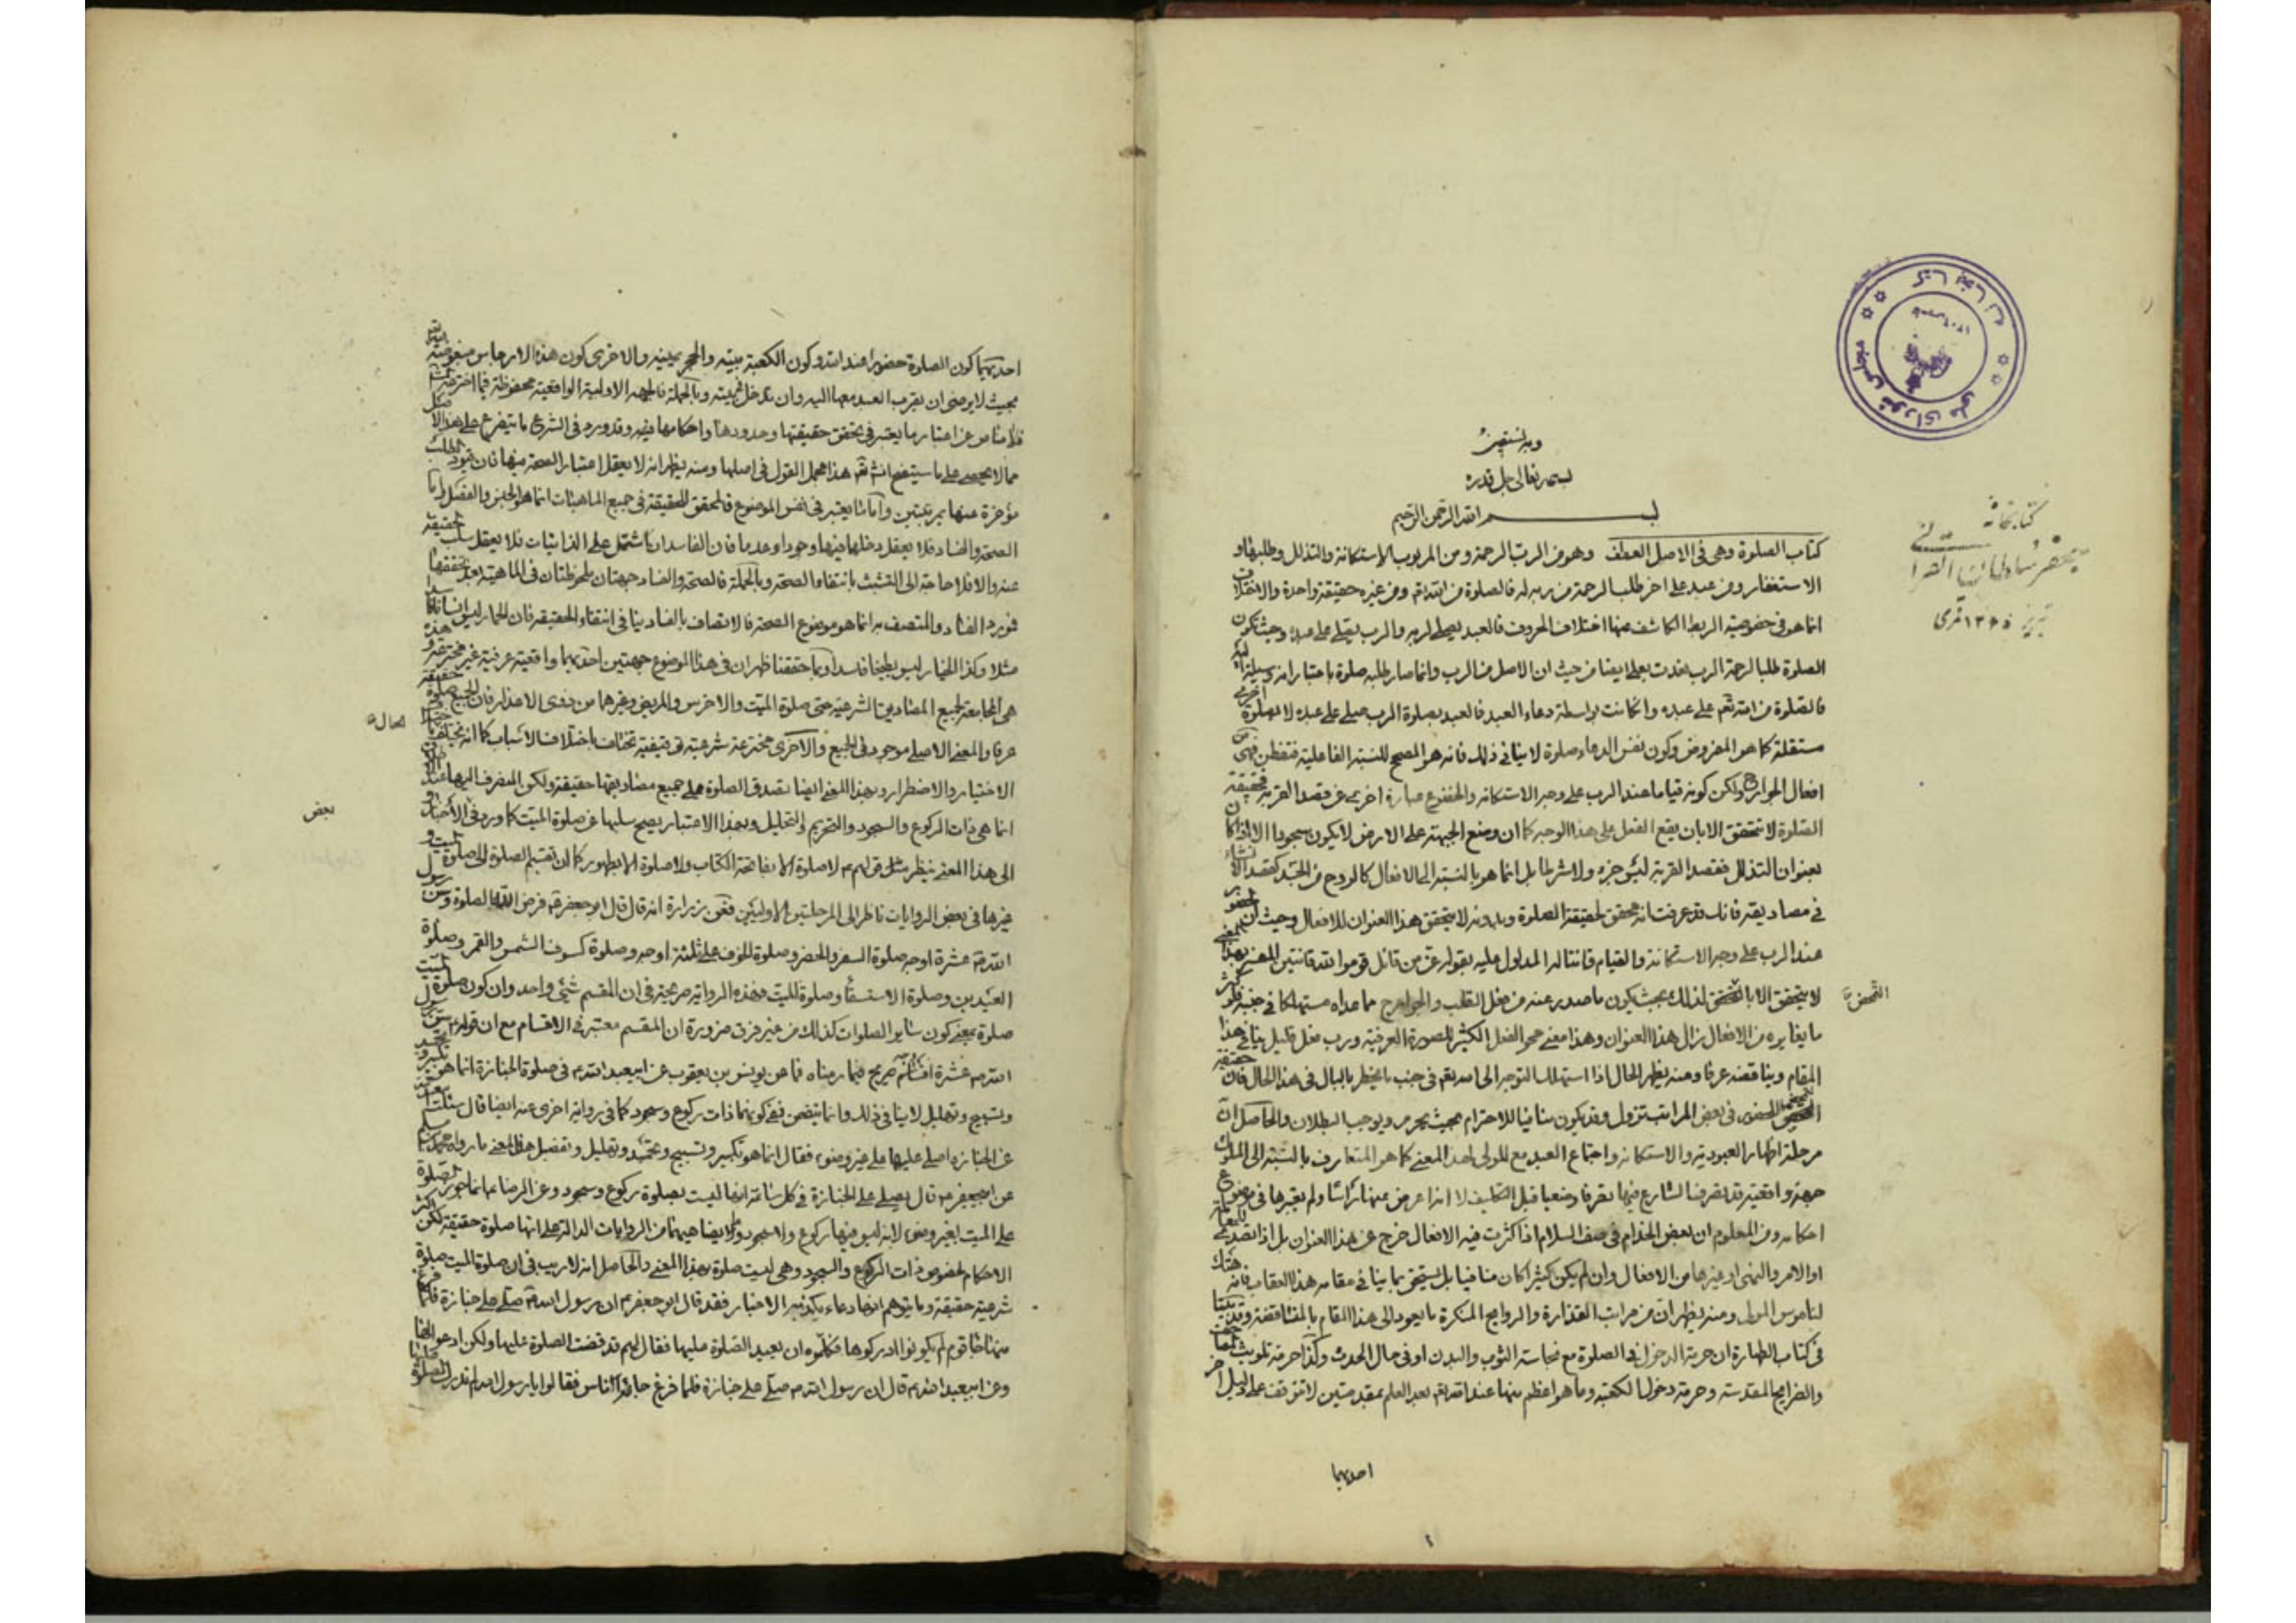 وبه نستعين
بسمه تعالى جل قدره
بسم الله الرحمن الرحيم
كتاب الصلوة وهى فى الاصل العطف وهو من الرب الرحمة ومن المربوب الاستكانة والتذلل وطلبها و
الاستغفار ومن عبد على اخر طلب الرحمة من ربه له فالصلوة من الله تعم ومن غيره حقيقة واحدة والاختلاف
انما هو فى خصوصية الربط الكاشف عنها اختلاف الحروف فالعبد يصلى لربه والرب يصلى على عبده وحيث تكون
الصلوة طلبا لرحمة الرب بعدت بعلى ايضا من حيث ان الاصل من الرب وانما صار طلبه صلوة باعتبار انه وسيلة
فالصلوة من الله تعم على عبده وان كانت بواسطة دعاء العبد فالعبد بصلوة الرب صلى على عبده لا بصلوة اخرى
مستقلة كما هو المفروض وكون نفس الدعاء صلوة لا ينافى ذلك فانه هو المصحح للنسبة الفاعلية فتفطن فهى من
افعال الجوارح ولكن كونه قياما عند الرب على وجه الاستكانة والخضوع عبارة اخرى عن قصد القربة فحقيقة
الصلوة لا تتحقق الا بان يقع الفعل على هذا الوجه كما ان وضع الجبهة على الارض لا يكون سجودا الا اذا كان
بعنوان التذلل فقصد القربة ليس جزء ولا شرطا بل انما هو بالنسبة الى الافعال كالروح من الجسد كقصد الانشاء
فى مصاديقه فانك قد عرفت انه محقق لحقيقة الصلوة وبدونه لا يتحقق هذا العنوان للافعال وحيث ان الحضور
عند الرب على وجه الاستكانة والقيام قانتا له المدلول عليه بقوله عز من قائل قوموا لله قانتين بهذا المعنى
لا يتحقق الا لذلك بحيث يكون ما صدر عنه من فعل القلب والجوارح مما عداه مستهلكا فى جنبه فلو كثر
التمحض
ما يغايره من الافعال زال هذا العنوان وهذا معنى محو الفعل الكثير لصورة العرفية ورب فعل قليل ينافى هذا
المقام ويناقضه عرفا ومنه يظهر الحال اذا استهلك التوجه الى الله تعم فى جنب ما يخطر بالبال فى هذا الحال فان حقيقة
الحضور فى بعض المراتب تزول وقد يكون منافيا للاحترام بحيث يحرم ويوجب البطلان والحاصل ان
مرحلة اظهار العبودية والاستكانة واجتماع العبد مع المولى لهذا المعنى كما هو المتعارف بالنسبة الى الملوك
جهة واقعية قد تصرف الشارع فيها تصرفا وضعيا قبل التكليف لا انه اعرض عنها راسا ولم يعتبرها فى موضوع
احكامه ومن المعلوم ان بعض الخدام فى صف السلام اذا كثرت فيه الافعال خرج عن هذا العنوان بل اذا تصدى
او الامر والنهى او غيرها من الافعال وان لم يكن كثيرا كان منافيا بل يستحق بما ينافى مقامه هذا العقاب فانه هتك
لناموس المولى ومنه يظهر ان من مراتب القذارة والروايح المنكرة ما يعود الى هذا المقام بالمناقضة وقد بينا
فى كتاب الطهارة ان حرمة الدخول فى الصلوة مع نجاسة الثوب والبدن او فى حال الحدث وكذا حرمة تلويث
والضرايح المقدسة وحرمة دخول الكعبة وما هو اعظم منها عند الله تعم بعد العلم بمقدمتين لا تتوقف على دليل اخر
احديهما
كتابخانه
تبريز ١٣٦٥ قمرى
احديهما كون الصلوة حضورا عند الله وكون الكعبة بيته والحجر يمينه والاخرى كون هذه الارجاس مبغوضة
بحيث لا يرضى ان يقرب العبد معها اليه وان يدخل بيته وبالجملة فالجهة الاولية الواقعية محفوظة فيما اخترعه
فلا مناص عن اعتبار ما يعتبر فى تحقق حقيقتها وحدودها واحكامها فيه وقد ورد فى الشرع ما يتفرع على هذا الاصل
مما لا يحصى على ما سيتضح انش تعم هذا مجمل القول فى اصلها ومنه يظهر انه لا يعقل اعتبار الصحة فيها فان قيود الطلب
مؤخرة عنها بمرتبتين وانما يعتبر فى نفس الموضوع فالمحقق للحقيقة فى جميع الماهيات انما هو الجنس والفصل واما
الصحة والفساد فلا يعقل دخلها فيها وجودا وعدما فان الفاسد ان اشتمل على الذاتيات فلا يعقل سلب الحقيقة
عنه والا فلا حاجة الى التشبث بانتفاء الصحة وبالجملة فالصحة والفساد جهتان ملحوظتان فى الماهية بعد تحققها
فمورد الفساد والمتصف به انما هو موضوع الصحة فالاتصاف بالفساد ينافى انتفاء الحقيقة فان الحمار ليس انسانا فاسدا
مثلا وكذا الخيار ليس بطيخا فاسدا وبما حققنا ظهر ان فى هذا الموضوع جهتين احديهما واقعية عرفية غير مخترعة و هذه
هى الجامعة لجميع المصاديق الشرعية حتى صلوة الميت والاخرس والمريض وغيرها من ذوى الاعذار فان الجميع صلوة حقيقة
عرفا والمعنى الاصلى موجود فى الجميع والاخرى مخترعة شرعية توقيفية تختلف باختلاف الاسباب كما انه يختلف
الحال
الاختيار والاضطرار وبهذا المعنى ايضا تصدق الصلوة على جميع مصاديقها حقيقة ولكن المنصرف اليها عند الاطلاق
انما هى ذات الركوع والسجود والتحريم والتحليل وبهذا الاعتبار يصح سلبها عن صلوة الميت كما ورد فى الاخبار و
بعض
الى هذا المعنى ينظر مثل قولهم ع لا صلوة الا بفاتحة الكتاب ولا صلوة الا بطهور كما ان تقسيم الصلوة الى صلوة الميت و
غيرها فى بعض الروايات ناظر الى المرحلتين الاوليين فعن زرارة انه قال قال ابو جعفر ع فرض الله الصلوة وسن رسول
الله ص عشرة اوجه صلوة السفر والحضر وصلوة الخوف على ثلثة اوجه وصلوة كسوف الشمس والقمر وصلوة
العيدين وصلوة الاستسقاء وصلوة الميت فهذه الرواية صريحة فى ان المقسم شئى واحد وان كون صلوة الميت
صلوة بمعنى كون ساير الصلوات كذلك من غير فرق ضرورة ان المقسم معتبر فى الاقسام مع ان قوله ع سن رسول
الله ص عشرة اقسام صريح فيما رمناه فما عن يونس بن يعقوب عن ابيعبد الله ع فى صلوة الجنازة انما هو تكبير و تحميد
وتسبيح وتهليل لا ينافى ذلك وانما يتضمن نفى كونها ذات ركوع وسجود كما فى رواية اخرى عنه ايضا قال سئلته
عن الجنازة اصلى عليها على غير وضوء فقال انما هو تكبير وتسبيح وتحميد وتهليل وتفصيل هذا المعنى ما رواه محمد بن مسلم
عن ابيجعفر ع قال يصلى على الجنازة فى كل ساعة انها ليست بصلوة ركوع وسجود وعن الرضا ع انما جوز الصلوة
على الميت بغير وضوء لانه ليس فيها ركوع ولا سجود من الروايات الدالة على انها صلوة حقيقة لكن اكثر
الاحكام لخصوص ذات الركوع والسجود وهى ليست صلوة بهذا المعنى والحاصل انه لا ريب فى ان صلوة الميت صلوة
شرعية حقيقة وما يتوهم انها دعاء يكذبه الاخبار فقد قال ابو جعفر ع ان رسول الله ص صلى على جنازة فلما فرغ
منها جائه قوم لم يكونوا ادركوها فكلموه ان يعيد الصلوة عليها فقال لهم قد قضت الصلوة عليها ولكن ادعوا لها
وعن ابيعبد الله ع قال ان رسول الله ص صلى على جنازة فلما فرغ جائه اناس فقالوا يا رسول الله لم ندرك الصلوة عليها